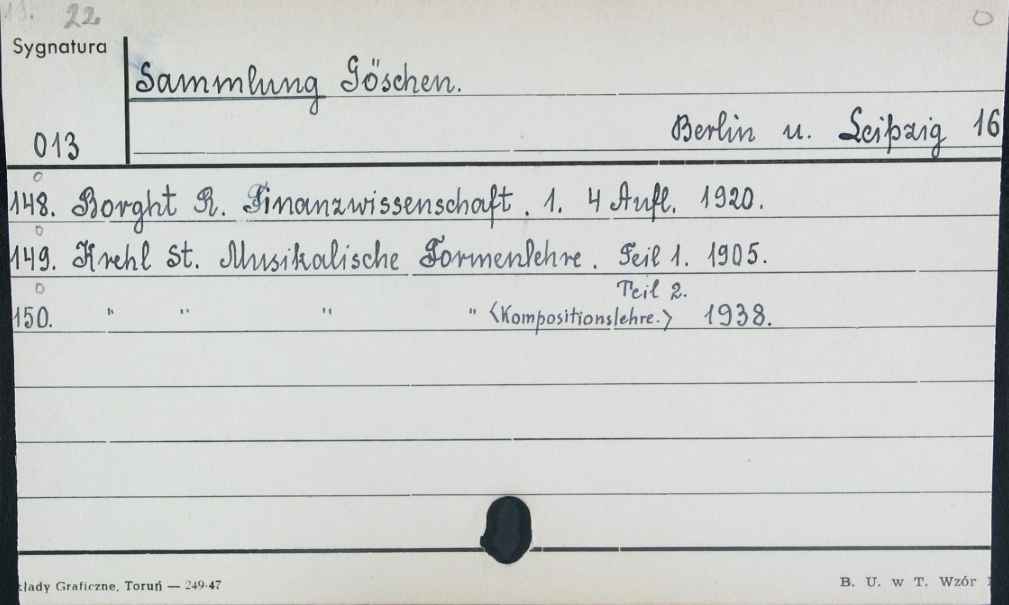 22
Sygnatura
Sammlung Göschen.
Berlin u. Leipzig 16
013
148. Borght R. Finanzwissenschaft. 1. 4 Aufl. 1920.
149. Krehl St. Musikalische Formenlehre. Teil 1. 1905.
Teil 2.
150. " " " " <Kompositionslehre.> 1938.
kłady Graficzne, Toruń — 249-47
B. U. w T. Wzór